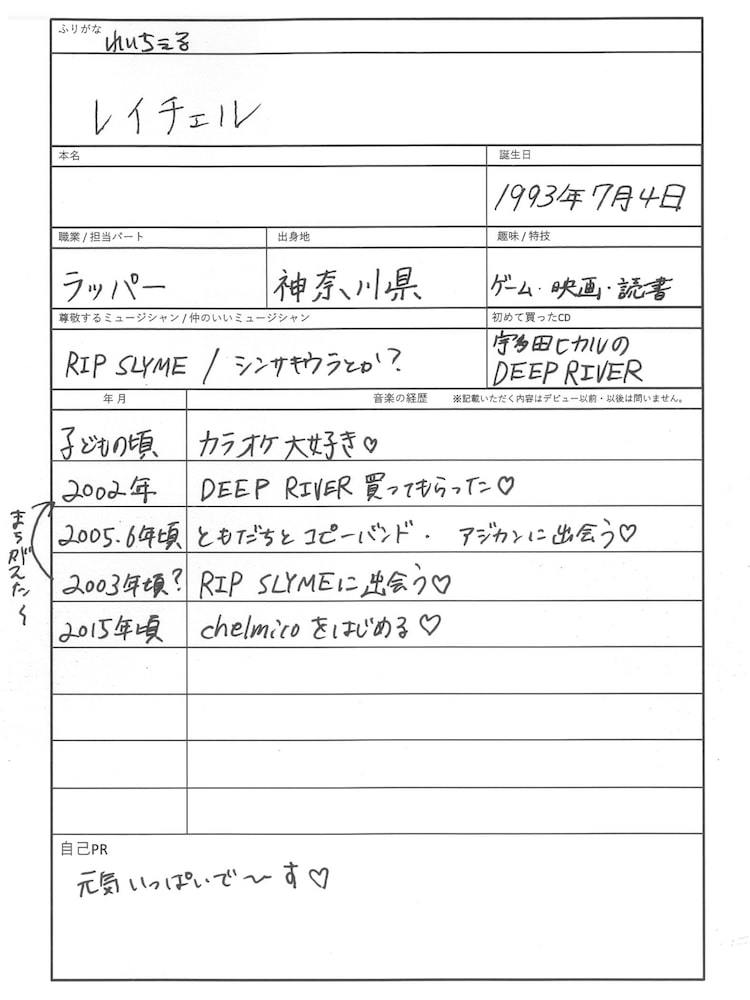 ふりがな
れいちぇる
レイチェル
本名
誕生日
1993年7月4日
職業 / 担当パート
出身地
趣味 / 特技
ラッパー
神奈川県
ゲーム・映画・読書
尊敬するミュージシャン / 仲のいいミュージシャン
初めて買ったCD
RIP SLYME / シンサキウラとか?
宇多田ヒカルの
DEEP RIVER
年 月
音楽の経歴 ※記載いただく内容はデビュー以前・以後は問いません。
子どもの頃 カラオケ大好き♡
2002年 DEEP RIVER 買ってもらった♡
2005.6年頃 ともだちとコピーバンド・ アジカンに出会う♡
2003年頃? RIP SLYMEに出会う♡
2015年頃 chelmicoをはじめる♡
まちがえた〜
自己PR
元気いっぱいで〜す♡